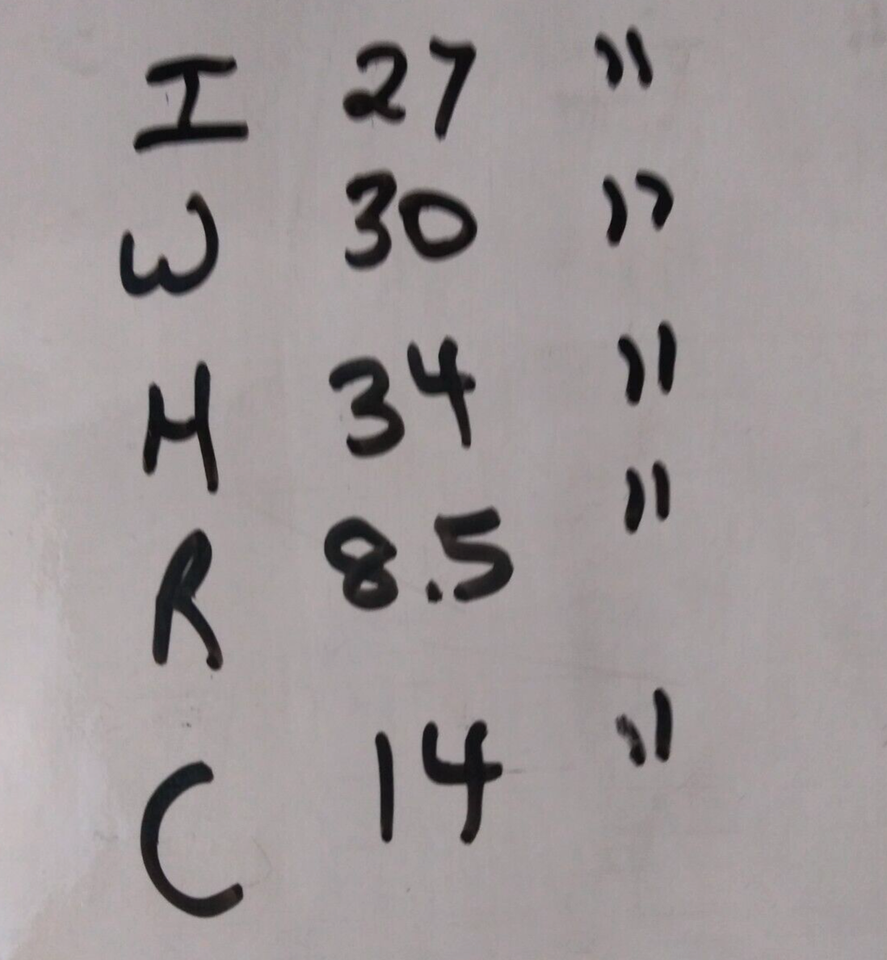 I 27 "
W 30 "
H 34 "
R 8.5 "
C 14 "